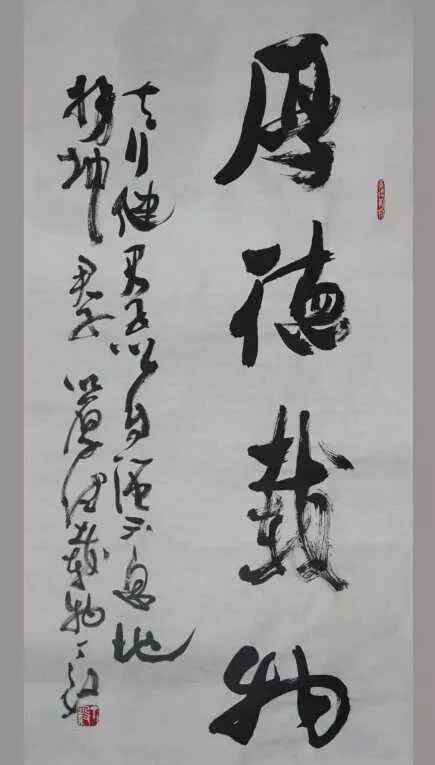 厚德載物
天行健君子以自强不息地
势坤君子以厚德載物